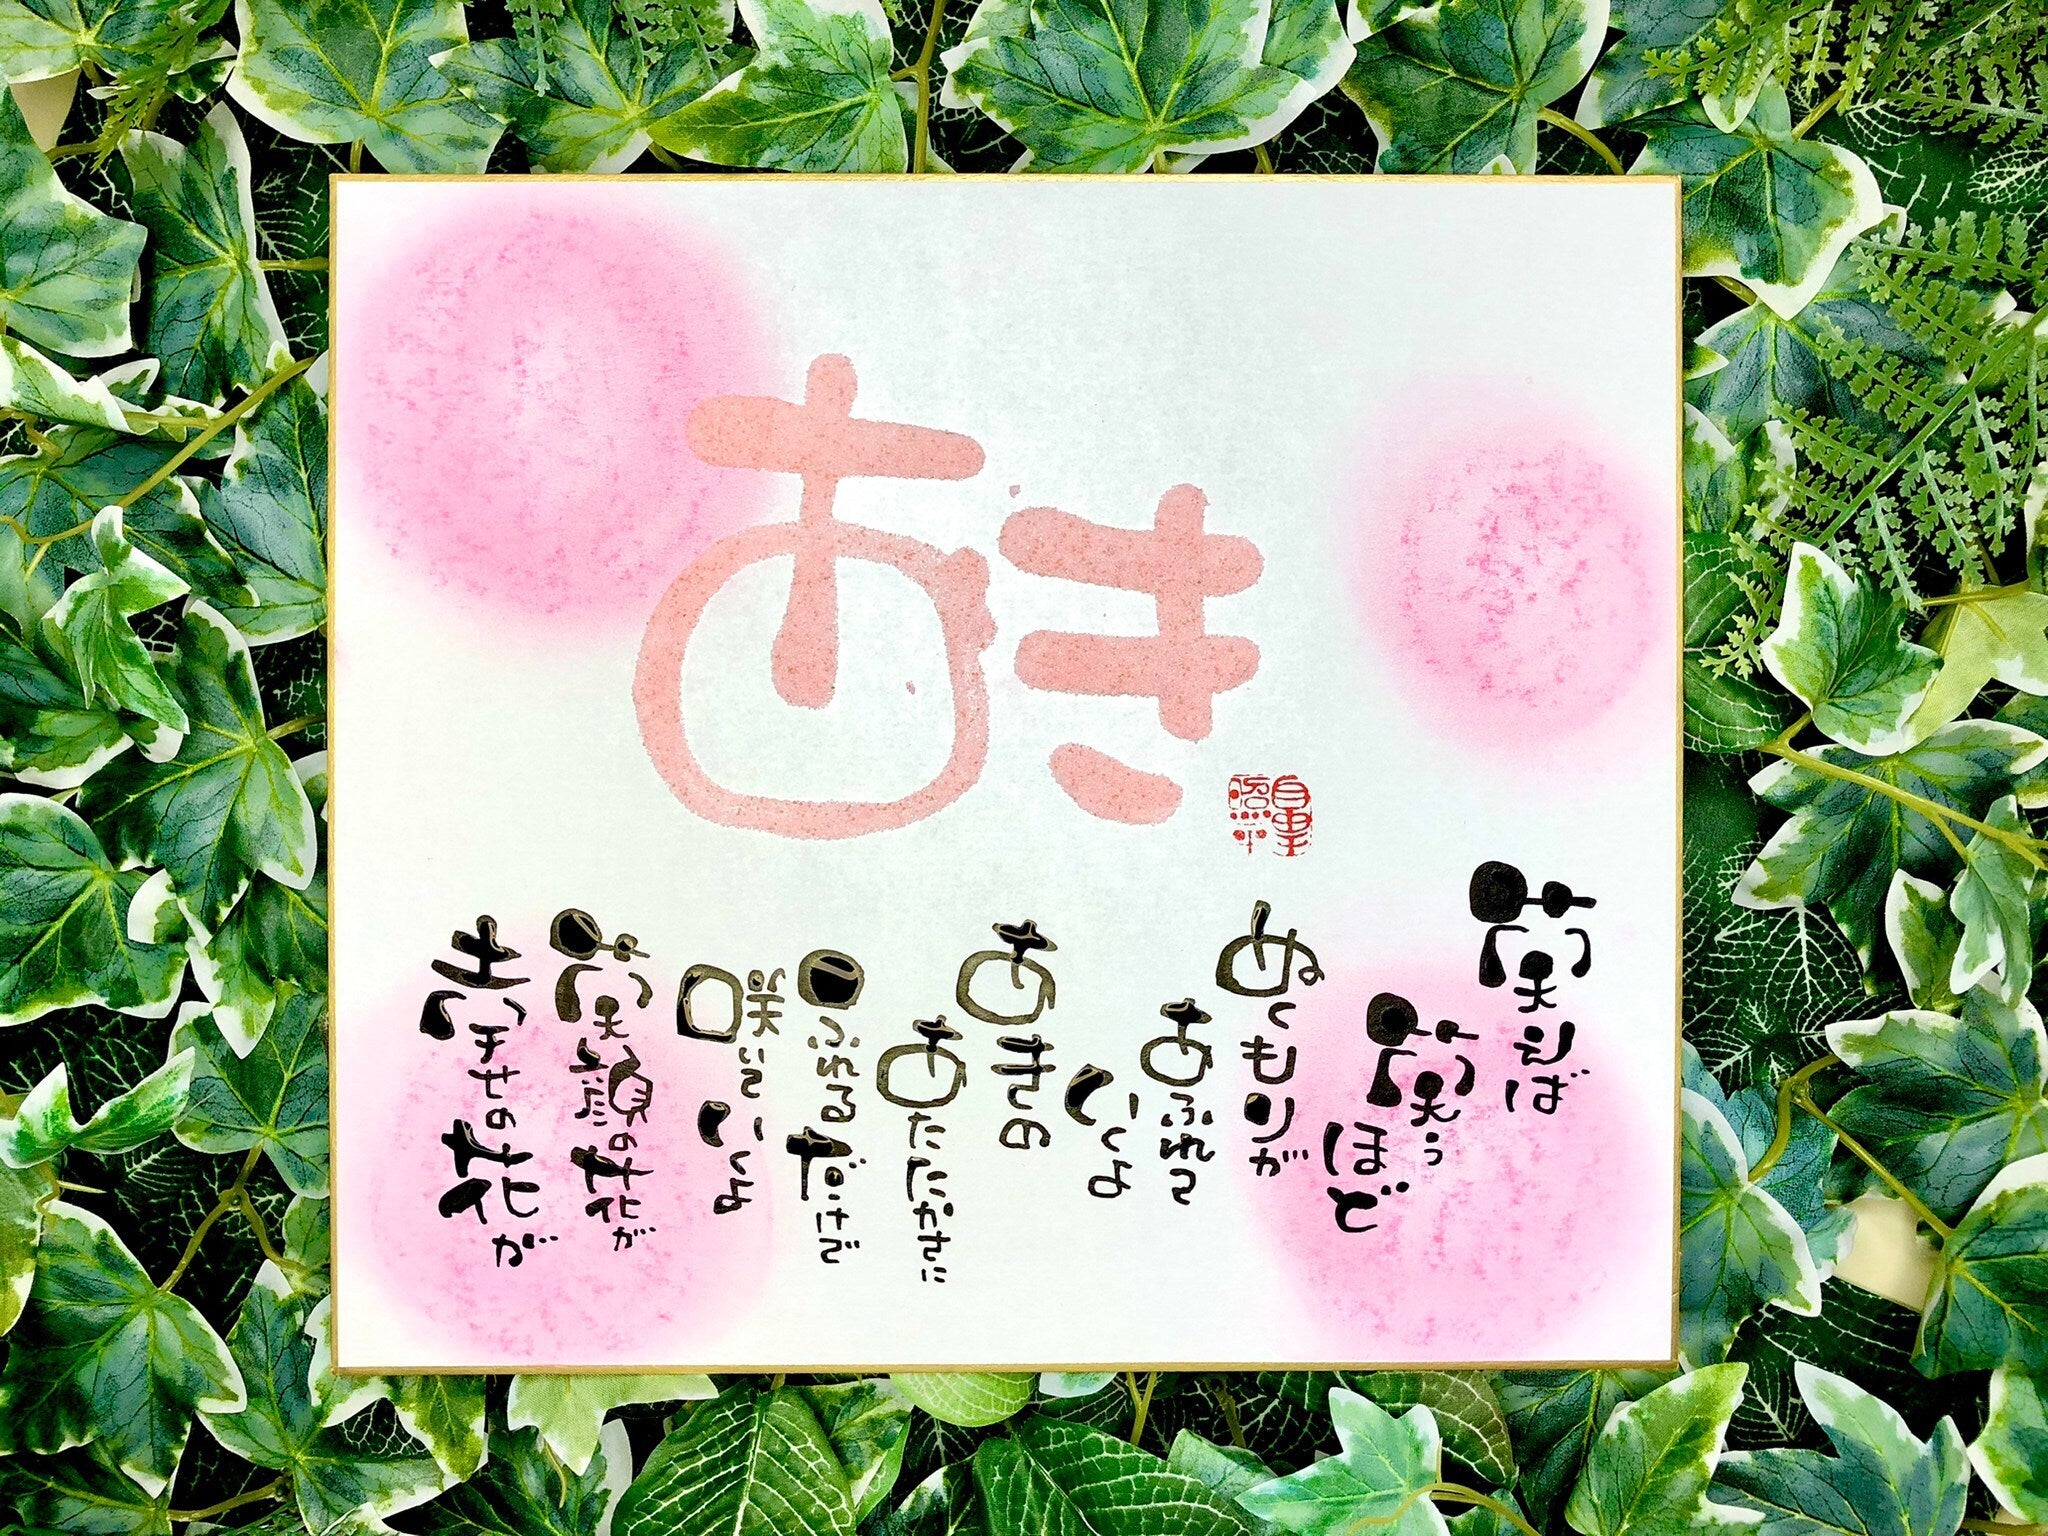 あき
笑えば
笑うほど
ぬくもりが
あふれて
いくよ
あきの
あたたかさに
ふれるだけで
咲いていくよ
笑顔の花が
幸せの花が